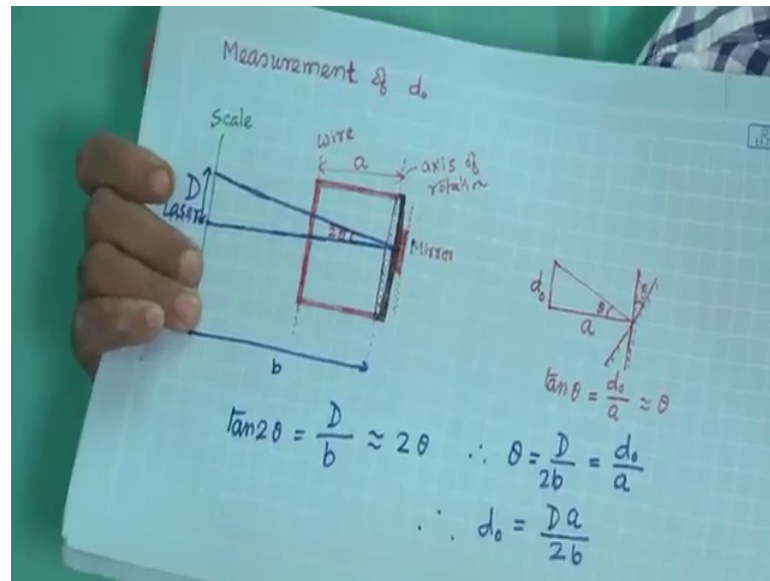 Measurement of d₀
Scale
wire
a
axis of
rotation
D
Laser
2θ
Mirror
b
d₀
θ
θ
a
tanθ = d₀/a ≈ θ
tan2θ = D/b ≈ 2θ ∴ θ = D/2b = d₀/a
∴ d₀ = Da/2b